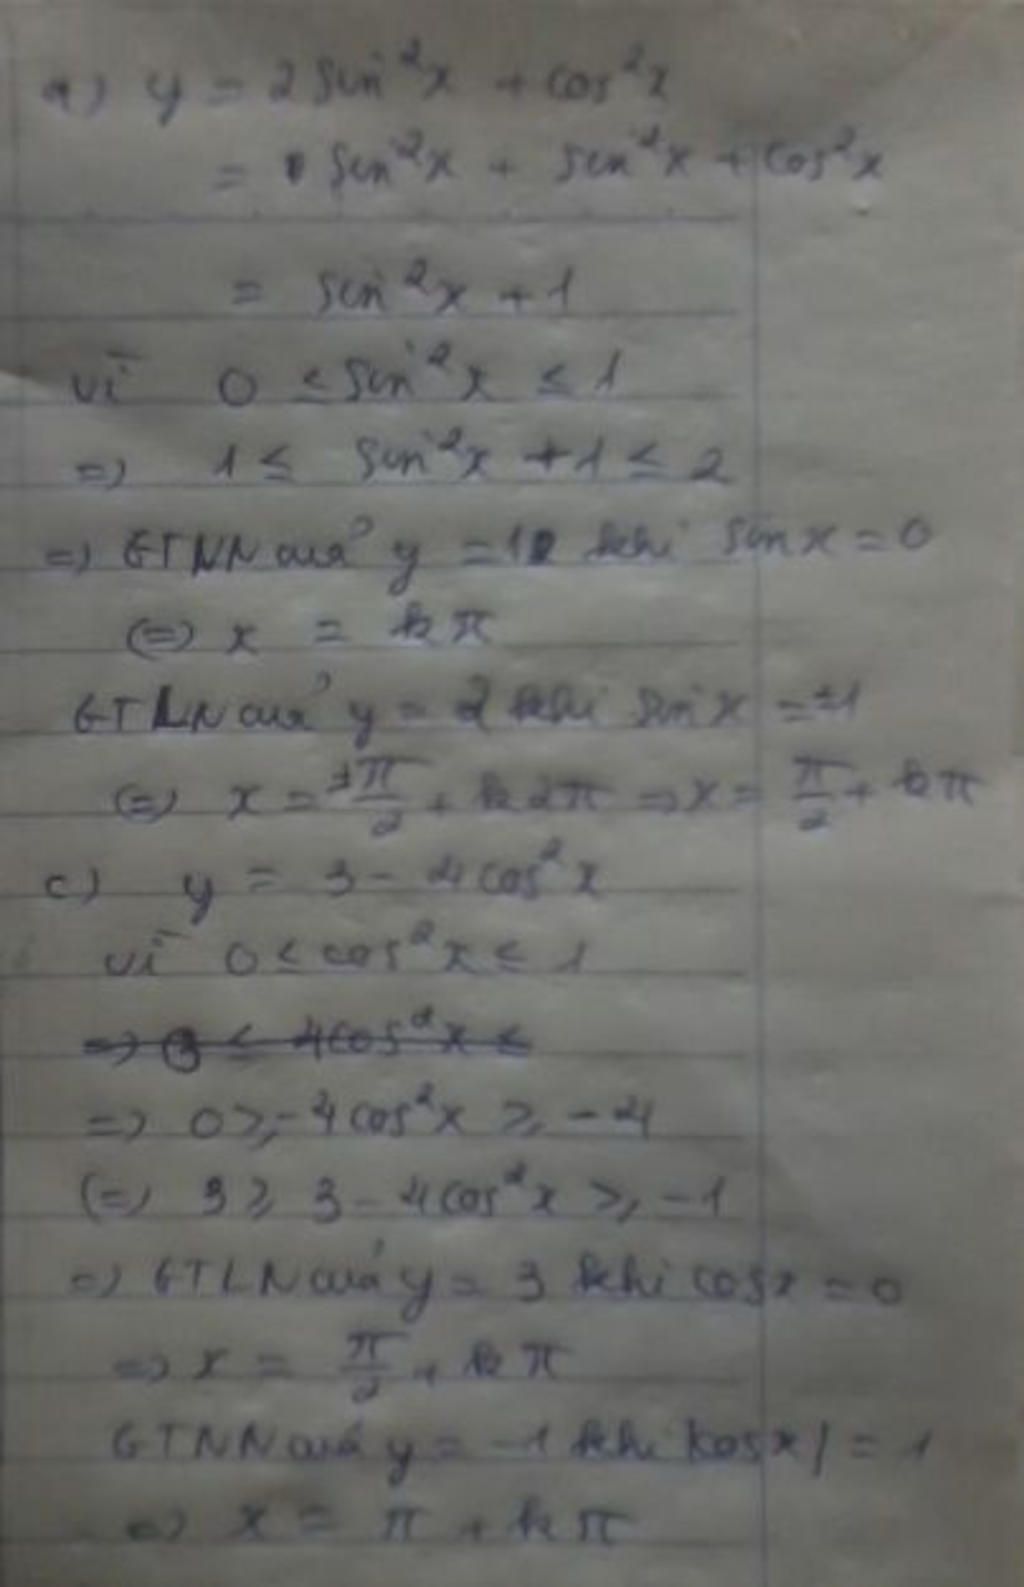 a) y = 2 sin²x + cos²x
= sin²x + sin²x + cos²x
= sin²x + 1
vì 0 ≤ sin²x ≤ 1
=> 1 ≤ sin²x + 1 ≤ 2
=> GTNN của y = 1 khi sin x = 0
(=) x = kπ
GTLN của y = 2 khi sin x = ±1
(=) x = ±π/2 + k2π => x = π/2 + kπ
c) y = 3 - 4cos²x
vì 0 ≤ cos²x ≤ 1
=> 0 ≥ -4cos²x ≥ -4
(=) 3 ≥ 3 - 4cos²x ≥ -1
=> GTLN của y = 3 khi cosx = 0
=> x = π/2 + kπ
GTNN của y = -1 khi |cosx| = 1
=> x = π + kπ